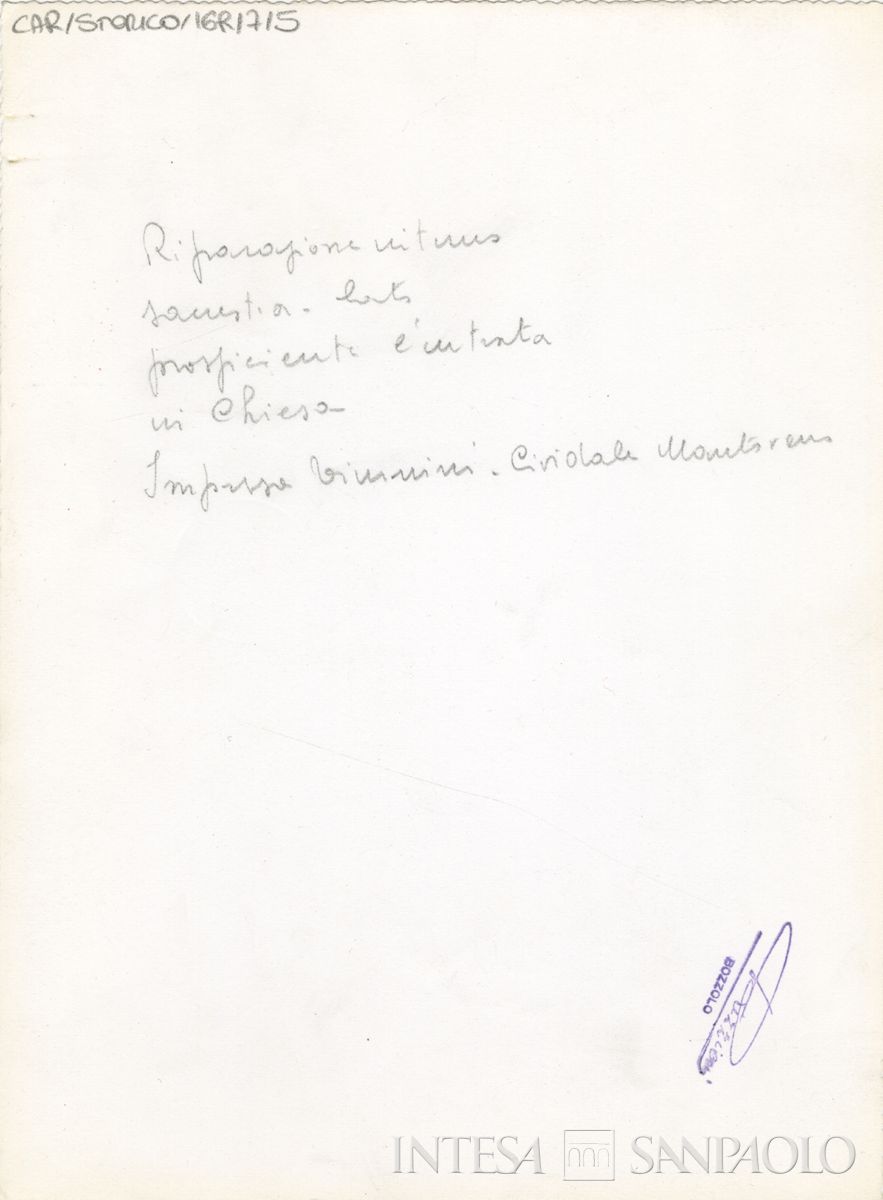 CAR/STORICO/16R/7/5
Riparazione interno
sacrestia - lato
prospiciente l'entrata
in Chiesa
Impresa - Cividale Mantovano
BOZZOLO
INTESA SANPAOLO